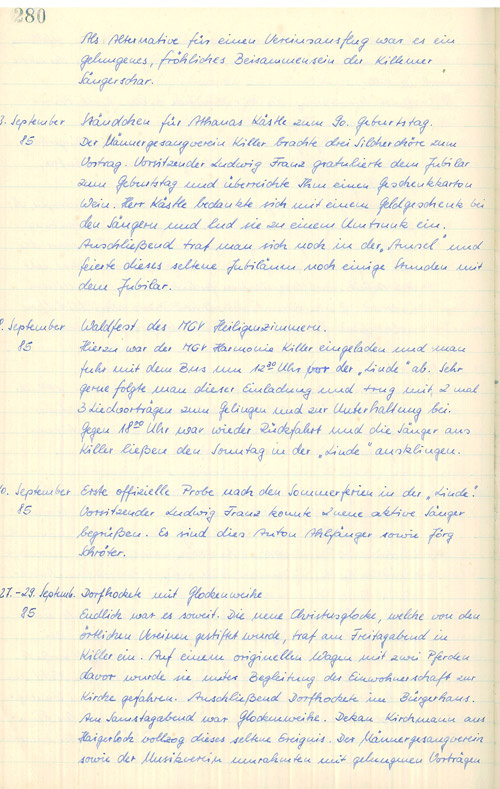 280
Als Alternative für einen Vereinsausflug war es ein
gelungenes, fröhliches Beisammensein der Killemer
Sängerschar.
3. September Ständchen für Athanas Kästle zum 90. Geburtstag.
85 Der Männergesangverein Killer brachte drei Silcherchöre zum
Vortrag. Vorsitzender Ludwig Franz gratulierte dem Jubilar
zum Geburtstag und überreichte Ihm einen Geschenkkarton
Wein. Herr Kästle bedankte sich mit einem Geldgeschenke bei
den Sängern und lud sie zu einem Umtrunke ein.
Anschließend traf man sich noch in der „Amsel" und
feierte dieses seltene Jubiläum noch einige Stunden mit
dem Jubilar.
. September Waldfest des MGV Heiligenzimmern.
85 Hierzu war der MGV Harmonie Killer eingeladen und man
fuhr mit dem Bus um 12³⁰ Uhr vor der „Linde" ab. Sehr
gerne folgte man dieser Einladung und trug mit 2 mal
3 Liedvorträgen zum Gelingen und zur Unterhaltung bei.
Gegen 18⁰⁰ Uhr war wieder Rückfahrt und die Sänger aus
Killer ließen den Sonntag in der „Linde" ausklingen.
0. September Erste offizielle Probe nach den Sommerferien in der „Linde".
85 Vorsitzender Ludwig Franz konnte 2 neue aktive Sänger
begrüßen. Es sind dies Anton Ahlfänger sowie Jörg
Schröter.
27.-29. Septemb. Dorfhockete mit Glockenweihe
85 Endlich war es soweit. Die neue Christusglocke, welche von den
örtlichen Vereinen gestiftet wurde, traf am Freitagabend in
Killer ein. Auf einem originellen Wagen mit zwei Pferden
davor wurde sie unter Begleitung der Einwohnerschaft zur
Kirche gefahren. Anschließend Dorfhockete im Bürgerhaus.
Am Samstagabend war Glockenweihe. Dekan Kirchmann aus
Haigerloch vollzog dieses seltene Ereignis. Der Männergesangverein
sowie der Musikverein umrahmten mit gelungenen Vorträgen